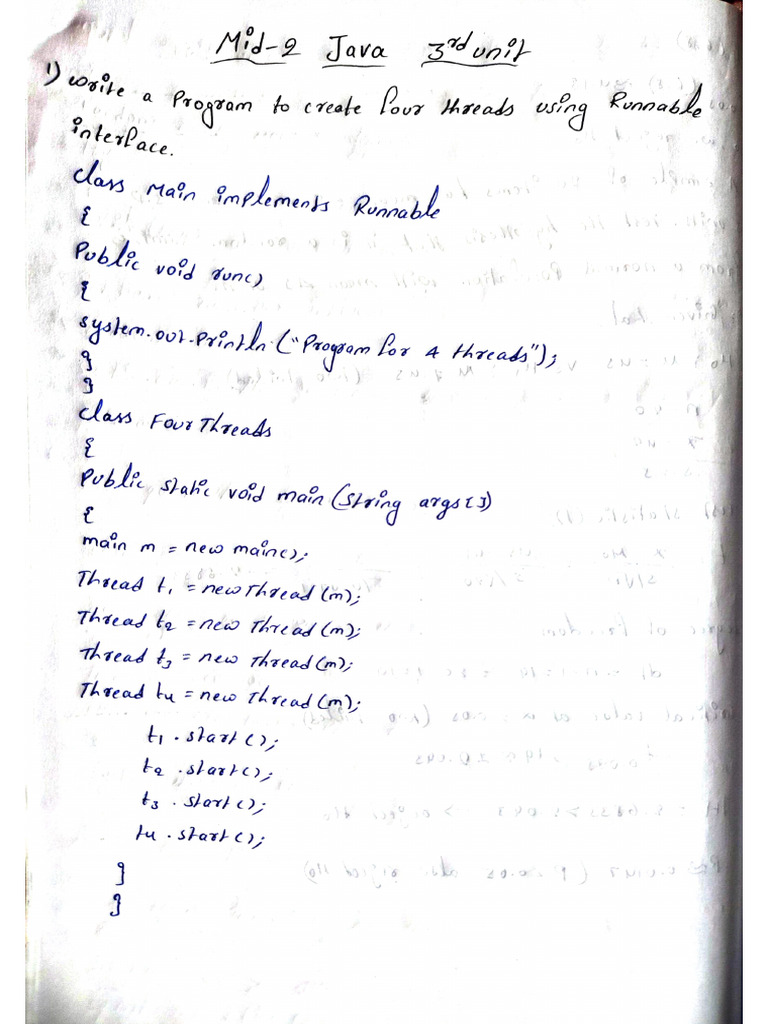 Mid-2 Java 3rd unit
1) Write a Program to create four threads using Runnable
interface.
class Main implements Runnable
{
Public void run()
{
System.out.println("Program for 4 threads");
}
}
class FourThreads
{
Public static void main(String args[])
{
main m = new main();
Thread t1 = new Thread(m);
Thread t2 = new Thread(m);
Thread t3 = new Thread(m);
Thread t4 = new Thread(m);
t1.start();
t2.start();
t3.start();
t4.start();
}
}